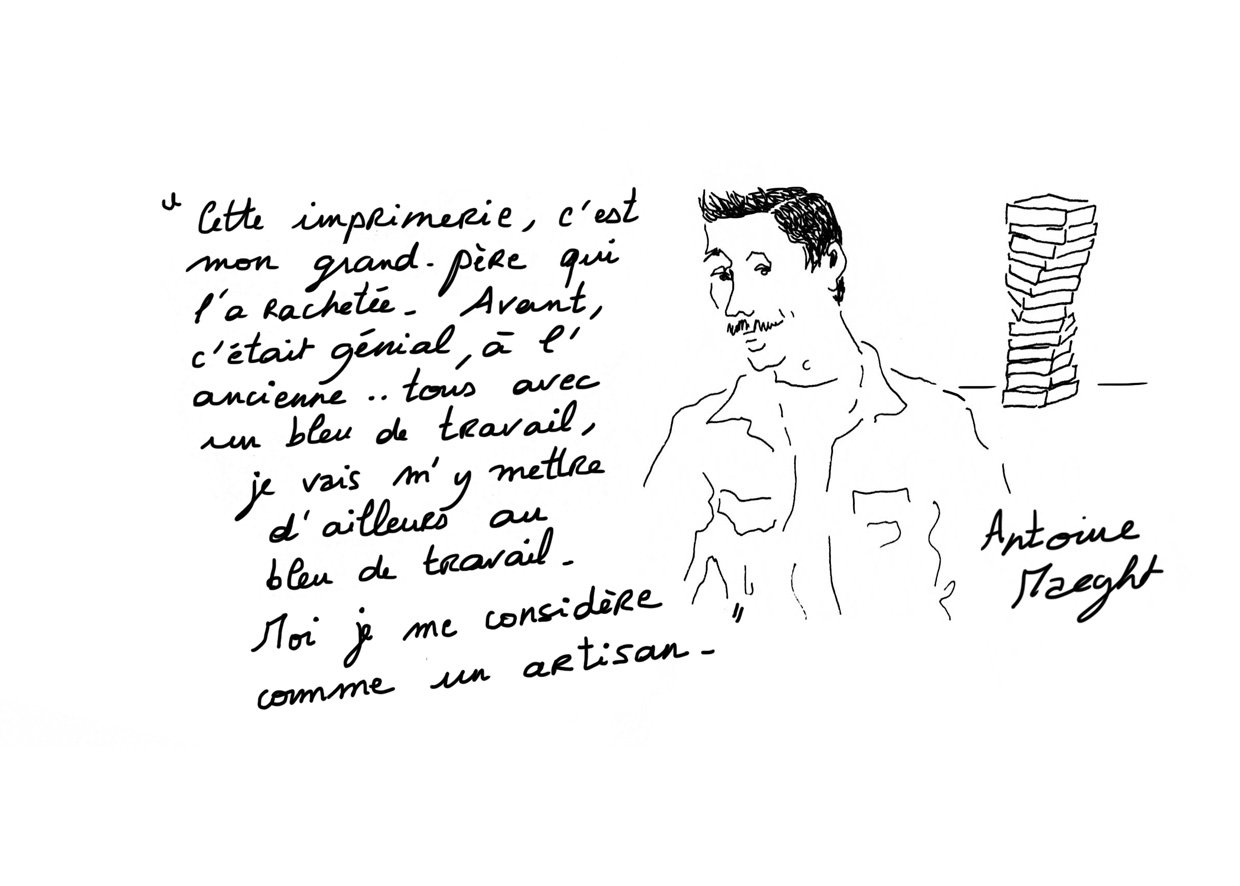 " Cette imprimerie, c'est
mon grand-père qui
l'a rachetée. Avant,
c'était génial, à l'
ancienne.. tous avec
un bleu de travail,
je vais m'y mettre
d'ailleurs au
bleu de travail.
Moi je me considère
comme un artisan. "
Antoine
Maeght